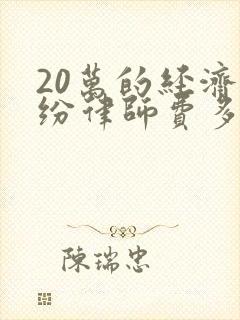 20萬的經濟
紛律師費多
陳瑞忠